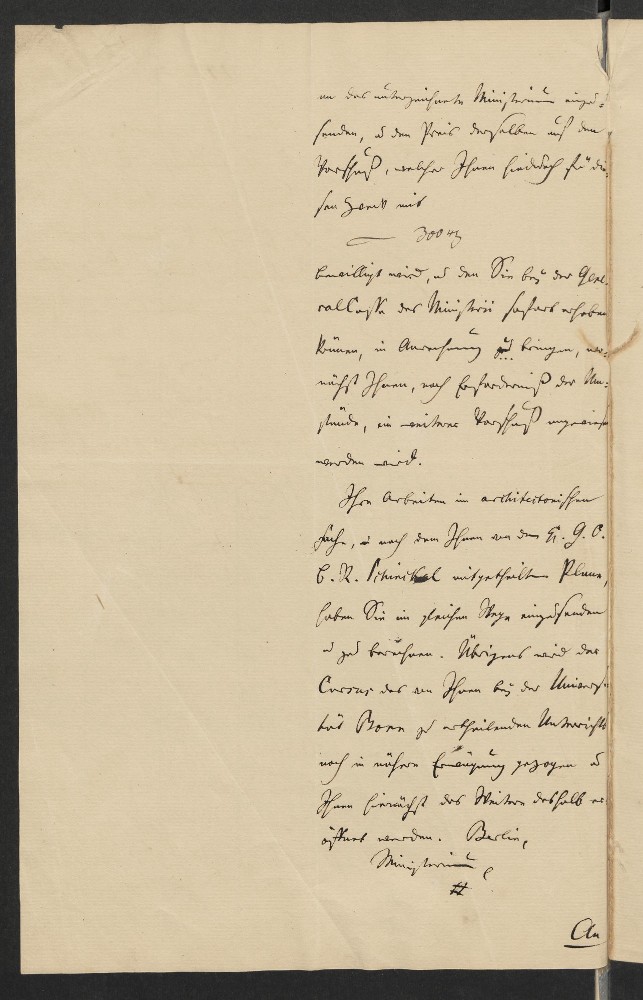 an das unterzeichnete Ministerium einzu-
senden, u den Preis derselben auf den
Vorschuß, welcher Ihnen hiedurch für die-
sen Zweck mit
300 rt
bewilligt wird, u den Sie bey der Gene-
ral Casse des Ministerii sofort erheben
können, in Anrechnung zu bringen, wo-
nächst Ihnen, nach Erforderniß der Um-
stände, ein weiterer Vorschuß angewiesen
werden wird.
Ihre Arbeiten im architectonischen
Fache, u nach dem Ihnen von dem H. G. O.
B. R. Schinckel mitgetheilten Plane,
haben Sie im gleichen Wege einzusenden
u zu berechnen. Übrigens wird der
Cursus des von Ihnen bey der Universi-
tät Bonn zu ertheilenden Unterrichts
noch in nähere Erwägung gezogen u
Ihnen hiernächst das Weitere deshalb er-
öffnet werden. Berlin,
Ministerium
An